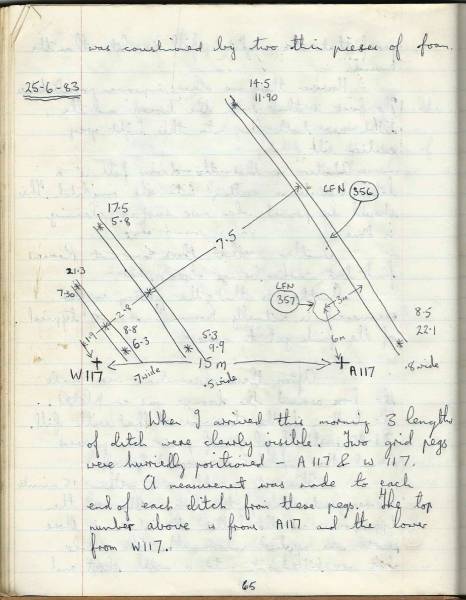 was cushioned by two thin pieces of foam
25-6-83
14.5
11.90
LFN 356
17.5
5.8
7.5
21.3
7.30
LFN
357
3m
2.8
1.9
8.8
6.3
5.3
9.9
6m
8.5
22.1
W117
.7 wide
15m
.5 wide
A117
.8 wide
When I arrived this morning 3 lengths
of ditch were clearly visible. Two grid pegs
were hurriedly positioned - A117 & W 117.
A measurement was made to each
end of each ditch from these pegs. The top
number above is from A117 and the lower
from W117.
65